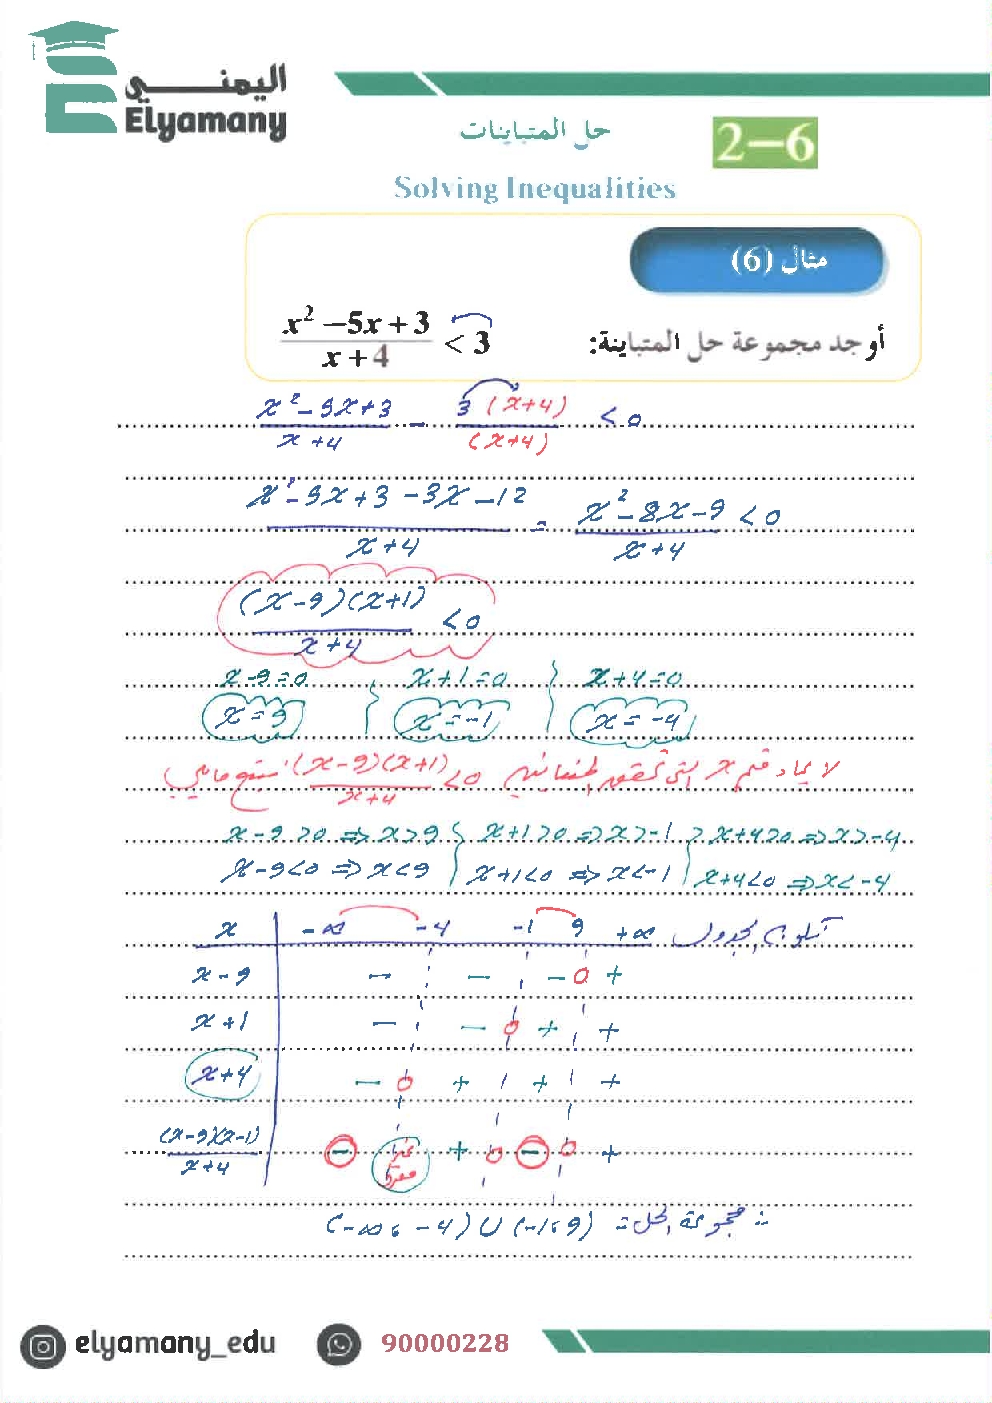 اليمني
Elyamany
حل المتباينات
2–6
Solving Inequalities
مثال (6)
أوجد مجموعة حل المتباينة:
(x² −5x + 3)/(x + 4) < 3
(x² − 5x + 3)/(x + 4) − 3(x+4)/(x+4) < 0
(x² − 5x + 3 − 3x − 12)/(x+4) = (x² − 8x − 9)/(x+4) < 0
(x−9)(x+1)/(x+4) < 0
x−9=0 x+1=0 x+4=0
x=9 x=−1 x=−4
لايجاد قيم x التي تحقق المتباينة (x−9)(x+1)/(x+4) < 0
x−9>0 ⇒ x>9 x+1>0 ⇒ x>−1 x+4>0 ⇒ x>−4
x−9<0 ⇒ x<9 x+1<0 ⇒ x<−1 x+4<0 ⇒ x<−4
x −∞ −4 −1 9 +∞ الجدول
x−9 − − − 0 +
x+1 − − 0 + +
x+4 − 0 + + +
(x−9)(x−1)/(x+4) − غير معرف + 0 − 0 +
∴ مجموعة الحل = (−∞, −4) ∪ (−1, 9)
elyamany_edu 90000228